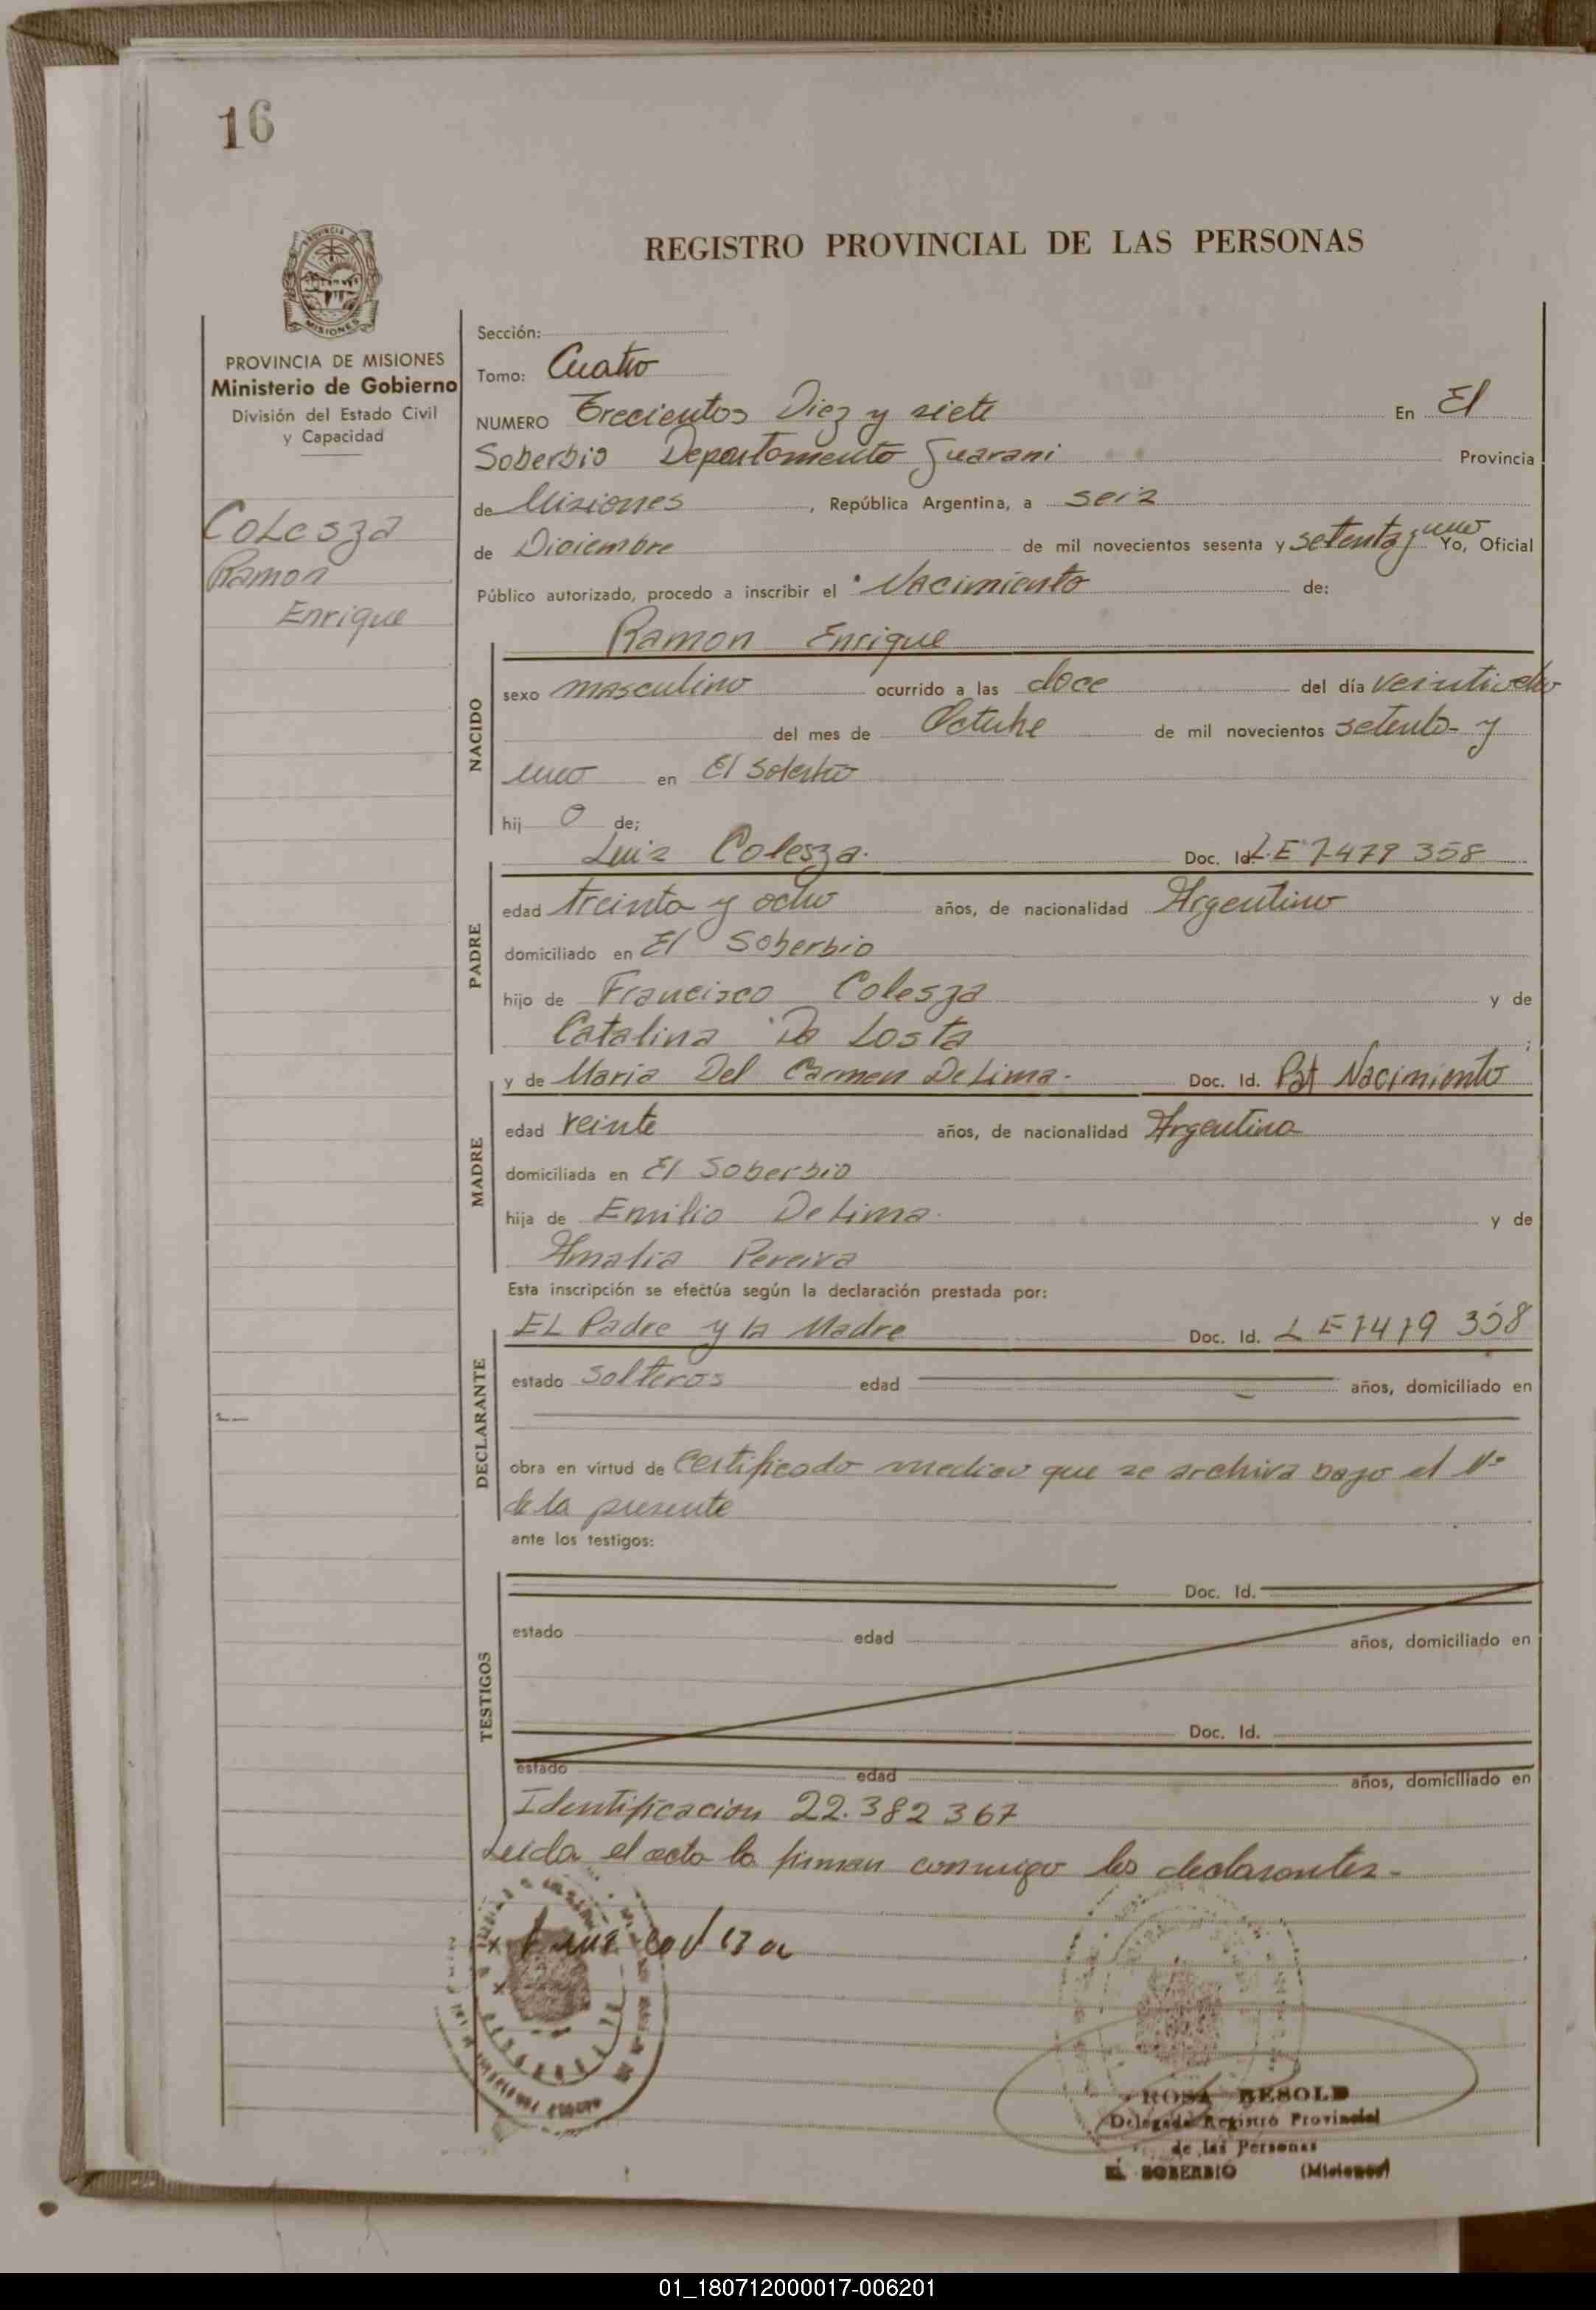 16
REGISTRO PROVINCIAL DE LAS PERSONAS
PROVINCIA DE
MISIONES
PROVINCIA DE MISIONES
Ministerio de Gobierno
División del Estado Civil
y Capacidad
Colesza
Ramon
Enrique
Sección:
Tomo: Cuatro
NUMERO Trecientos Diez y siete En El
Soberbio Departamento Guarani Provincia
de Misiones , República Argentina, a seis
de Diciembre de mil novecientos sesenta y setenta y uno Yo, Oficial
Público autorizado, procedo a inscribir el Nacimiento de:
Ramon Enrique
NACIDO
sexo masculino ocurrido a las doce del día
del mes de Octubre de mil novecientos setenta y
uno en El Soberbio
hij o de;
Luis Colesza. Doc. Id. L.E 7479 358
PADRE
edad treinta y ocho años, de nacionalidad Argentino
domiciliado en El Soberbio
hijo de Francisco Colesza y de
Catalina Da Costa ;
y de Maria Del Carmen De Lima. Doc. Id. Nacimiento
MADRE
edad veinte años, de nacionalidad Argentina
domiciliada en El Soberbio
hija de Emilio De Lima. y de
Amalia Pereira
Esta inscripción se efectúa según la declaración prestada por:
EL Padre y la Madre Doc. Id. L E 7479 358
DECLARANTE
estado solteros edad años, domiciliado en
obra en virtud de certificado medico que se archiva bajo el Nº
de la presente
ante los testigos:
TESTIGOS
Doc. Id.
estado edad años, domiciliado en
Doc. Id.
estado edad años, domiciliado en
Identificacion 22.382 367
Leida el acta la firman conmigo los declarantes.
ROSA BESOLD
Delegada Registro Provincial
de las Personas
EL SOBERBIO (Misiones)
01_180712000017-006201